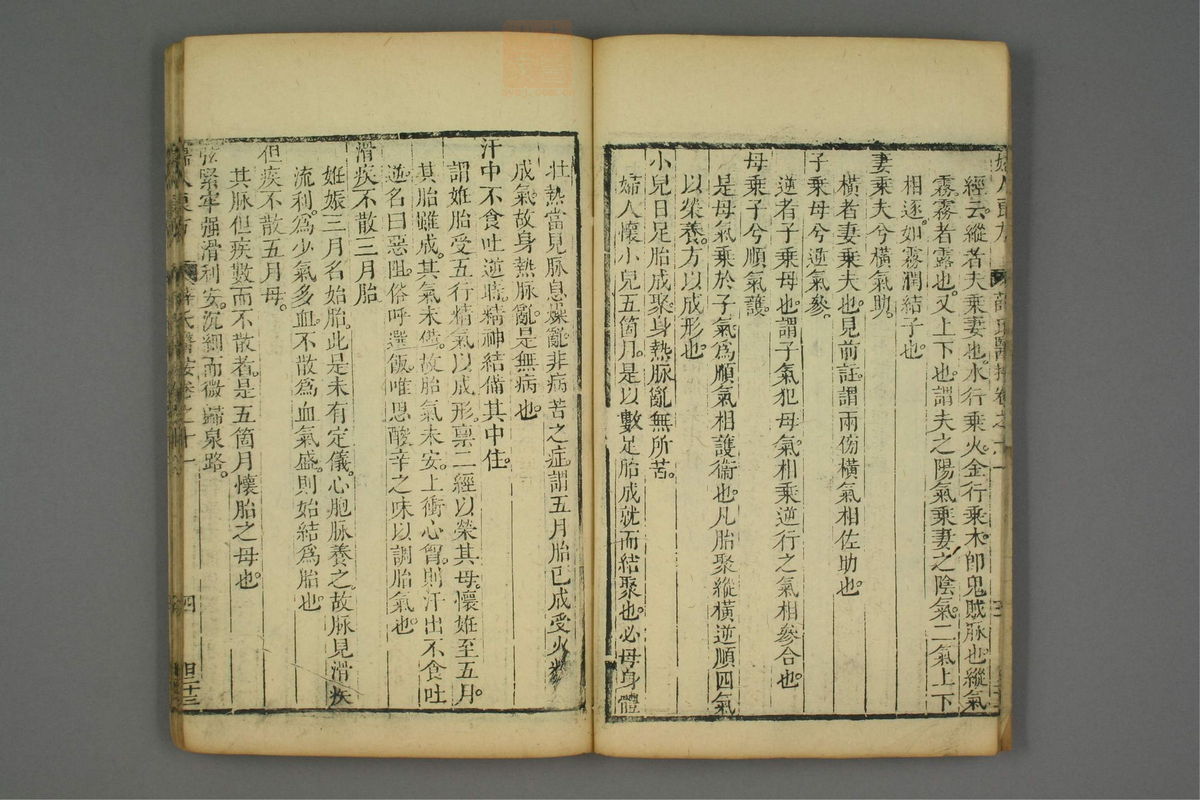 經云。縱者夫乘妻也。水行乘火。金行乘木。卽鬼賊脉也縱氣
霧霧者露也。又上下也。謂夫之陽氣乘妻之陰氣。二氣上下
相逐。如霧潤結子也。
妻乘夫兮橫氣助。
橫者妻乘夫也。見前註。謂兩傍橫氣相佐助也。
子乘母兮逆氣參。
逆者子乘母也。謂子氣犯母氣。相乘逆行之氣相參合也。
母乘子兮順氣護。
是母氣乘於子氣爲順氣相護衛也。凡胎聚縱橫逆順四氣
以榮養。方以成形也。
小兒日足胎成聚。身熱脉亂無所苦。
婦人懷小兒五箇月。是以數足胎成就而結聚也。必母身體
壯熱當見脉息燥亂非病苦之症。謂五月胎已成受火
成氣。故身熱脉亂。是無病也。
汗中不食吐逆時。精神結備其中住。
謂姙胎受五行精氣以成形。禀二經以榮其母。懷姙至五月。
其胎雖成。其氣未備。故胎氣未安。上衝心胷。則汗出不食吐
逆。名曰惡阻。俗呼選飯。唯思酸辛之味以調胎氣也。
滑疾不散三月胎
姙娠三月名始胎。此是未有定儀。心胞脉養之。故脉見滑疾
流利。爲少氣多血。不散爲血氣盛。則始結爲胎也。
但疾不散五月母。
其脉但疾數而不散者。是五箇月懷胎之母也。
弦緊牢强滑利安。沉細而微歸泉路。
薛氏醫按卷之十一
四